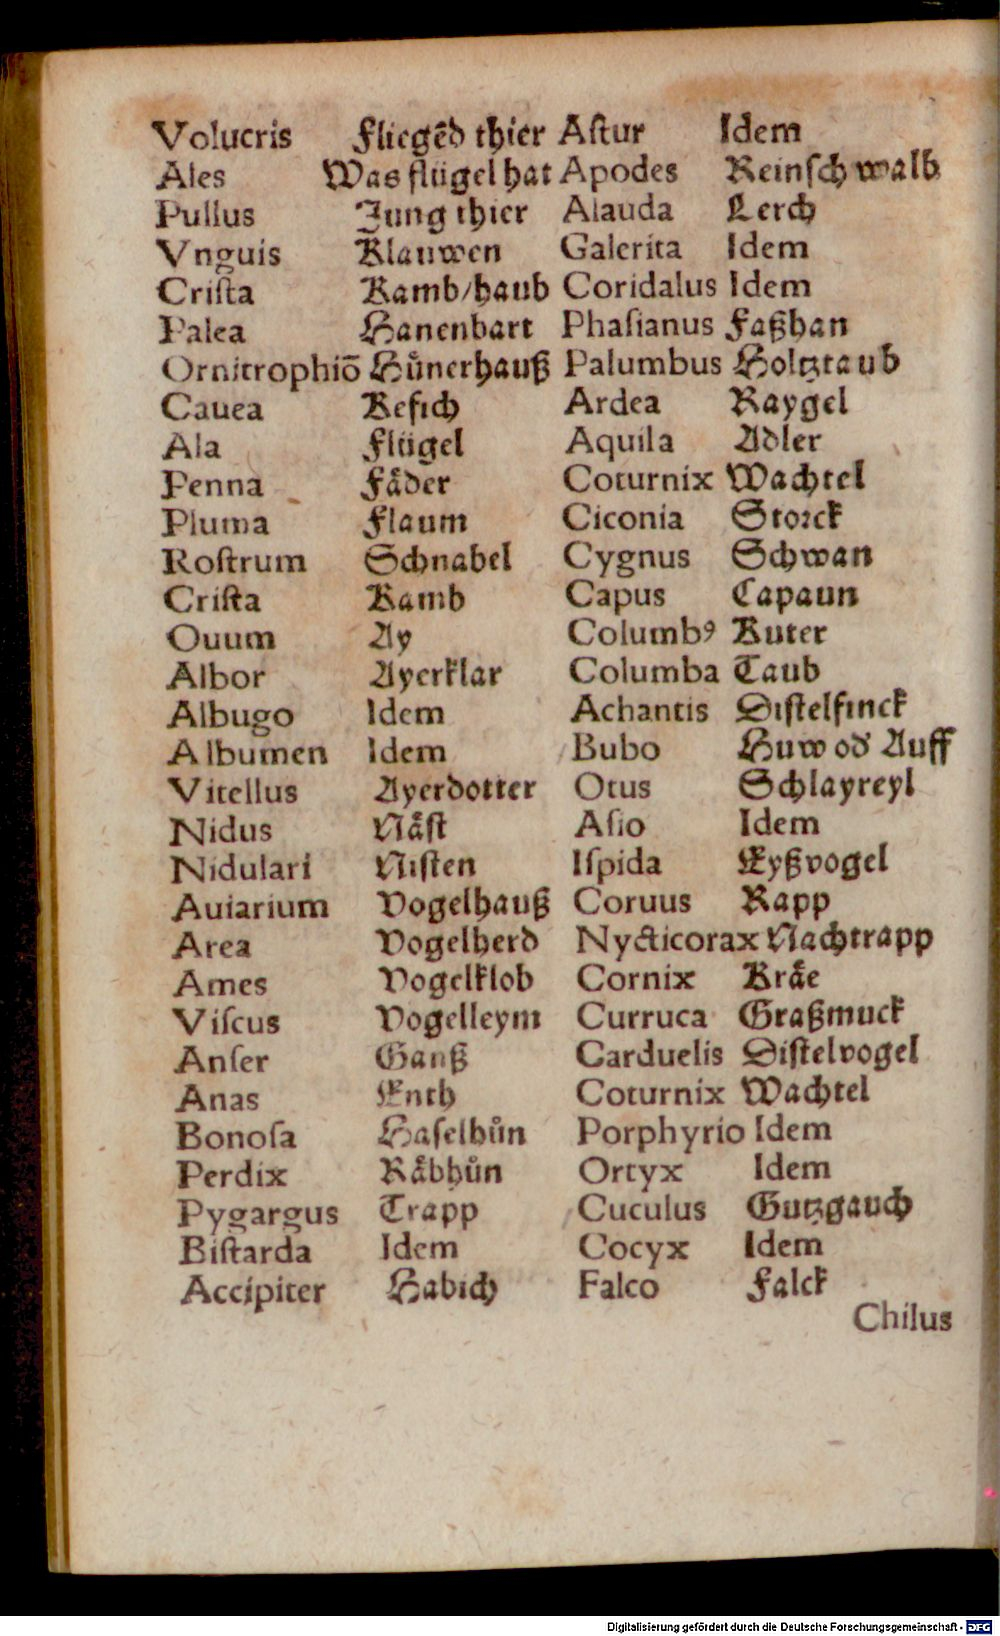 Volucris Fliegēd thier
Ales Was flügel hat
Pullus Jung thier
Vnguis Klauwen
Criſta Kamb/haub
Palea Hanenbart
Ornitrophiō Hůnerhauß
Cauea Kefich
Ala Flügel
Penna Fåder
Pluma Flaum
Roſtrum Schnabel
Criſta Kamb
Ouum Ay
Albor Ayerklar
Albugo Idem
Albumen Idem
Vitellus Ayerdotter
Nidus Nåſt
Nidulari Niſten
Auiarium Vogelhauß
Area Vogelherd
Ames Vogelklob
Viſcus Vogelleym
Anſer Ganß
Anas Enth
Bonoſa Haſelhůn
Perdix Råbhůn
Pygargus Trapp
Biſtarda Idem
Accipiter Habich
Aſtur Idem
Apodes Reinſchwalb
Alauda Lerch
Galerita Idem
Coridalus Idem
Phaſianus Faßhan
Palumbus Holtztaub
Ardea Raygel
Aquila Adler
Coturnix Wachtel
Ciconia Storck
Cygnus Schwan
Capus Capaun
Columbꝰ Kuter
Columba Taub
Achantis Diſtelfinck
Bubo Huw od̕ Auff
Otus Schlayreyl
Aſio Idem
Iſpida Eyßvogel
Coruus Rapp
Nycticorax Nachtrapp
Cornix Kråe
Curruca Graßmuck
Carduelis Diſtelvogel
Coturnix Wachtel
Porphyrio Idem
Ortyx Idem
Cuculus Gutzgauch
Cocyx Idem
Falco Falck
Chilus
Digitalisierung gefördert durch die Deutsche Forschungsgemeinschaft - DFG